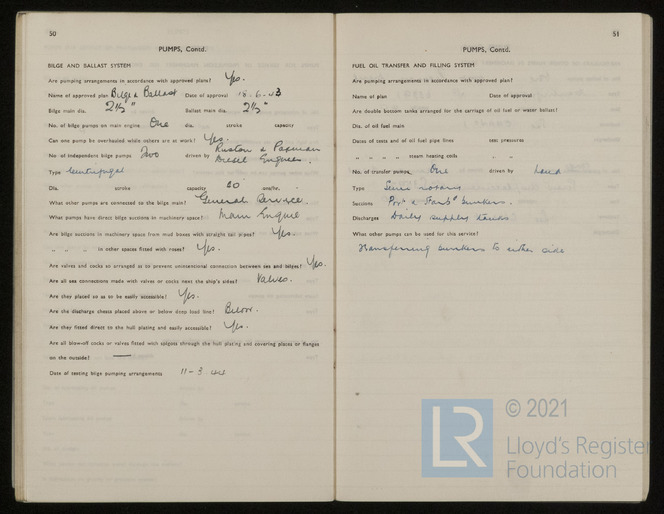 50
PUMPS, Contd.
BILGE AND BALLAST SYSTEM
Are pumping arrangements in accordance with approved plans? Yes.
Name of approved plan Bilge & Ballast Date of approval 18.6.43
Bilge main dia. 2½" Ballast main dia. 2½"
No. of bilge pumps on main engine One dia. stroke capacity
Can one pump be overhauled while others are at work? Yes.
No. of independent bilge pumps Two driven by Ruston & Paxman Diesel Engines.
Type Centrifugal
Dia. stroke capacity 80 tons/hr.
What other pumps are connected to the bilge main? General Service.
What pumps have direct bilge suctions in machinery space? Main Engine
Are bilge suctions in machinery space from mud boxes with straight tail pipes? Yes.
„ „ „ in other spaces fitted with roses? Yes.
Are valves and cocks so arranged as to prevent unintentional connection between sea and bilges? Yes.
Are all sea connections made with valves or cocks next the ship's sides? Valves.
Are they placed so as to be easily accessible? Yes.
Are the discharge chests placed above or below deep load line? Below.
Are they fitted direct to the hull plating and easily accessible? Yes.
Are all blow-off cocks or valves fitted with spigots through the hull plating and covering plates or flanges
on the outside? —
Date of testing bilge pumping arrangements 11-3-44
51
PUMPS, Contd.
FUEL OIL TRANSFER AND FILLING SYSTEM
Are pumping arrangements in accordance with approved plan?
Name of plan Date of approval
Are double bottom tanks arranged for the carriage of oil fuel or water ballast?
Dia. of oil fuel main
Dates of tests and of oil fuel pipe lines test pressures
„ „ „ „ steam heating coils „ „
No. of transfer pumps One driven by hand
Type Semi rotary
Suctions Port & Starbd bunkers.
Discharges Daily supply tanks
What other pumps can be used for this service?
Transferring bunkers to either side
LR
© 2021
Lloyd's Register
Foundation